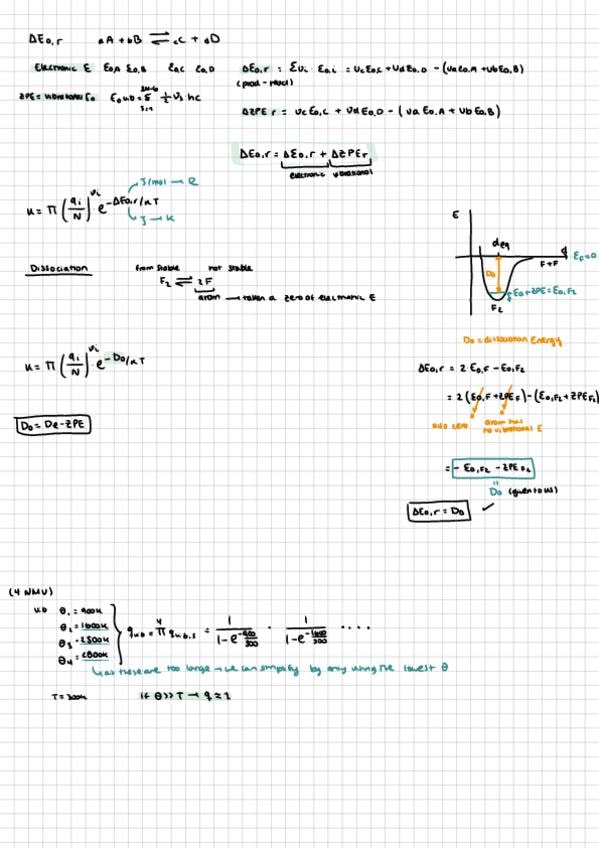 ΔE₀,r aA + bB ⇌ cC + dD
Electronic E E₀,A E₀,B E₀,C E₀,D ΔE₀,r = Σνᵢ · E₀,i = νcE₀,C + νdE₀,D - (νaE₀,A + νbE₀,B)
(prod - react)
ZPE = vibrational E₀ E₀ vib = Σ ½ νⱼ · hc
ΔZPE r = νc E₀,C + νd E₀,D - (νa E₀,A + νb E₀,B)
ΔE₀,r = ΔE₀,r + ΔZPEr
electronic vibrational
J/mol → R
K = Π (qᵢ/N)^νᵢ e^-ΔE₀,r/KT
J → K
E
deq
d
D₀
F+F
E_F=0
E₀+ZPE=E₀,F₂
F₂
Dissociation from stable not stable
F₂ ⇌ 2F
atom → taken a zero of electronic E
D₀ = dissociation Energy
K = Π (qᵢ/N)^νᵢ e^-D₀/KT
ΔE₀,r = 2·E₀,F - E₀,F₂
= 2(E₀,F + ZPE_F) - (E₀,F₂ + ZPE F₂)
zero atom has
no vibrational E
D₀ = De - ZPE
= - E₀,F₂ - ZPE F₂
D₀ (given to us)
ΔE₀,r = D₀ ✓
(4 NMV)
vib θ₁ = 900K
θ₂ = 1600K
θ₃ = 2500K
θ₄ = 2800K
q vib = Π⁴ q vib,s = 1/(1-e^-900/300) · 1/(1-e^-1600/300) · ....
↳ as these are too large → we can simplify by only using the lowest θ
T = 300K if θ>>T → q ≈ 1